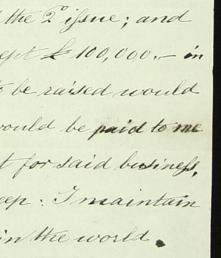 the 2d issue; and
ept £100,000,- in
be raised would
would be paid to me
for said business,
eep. I maintain
in the world.